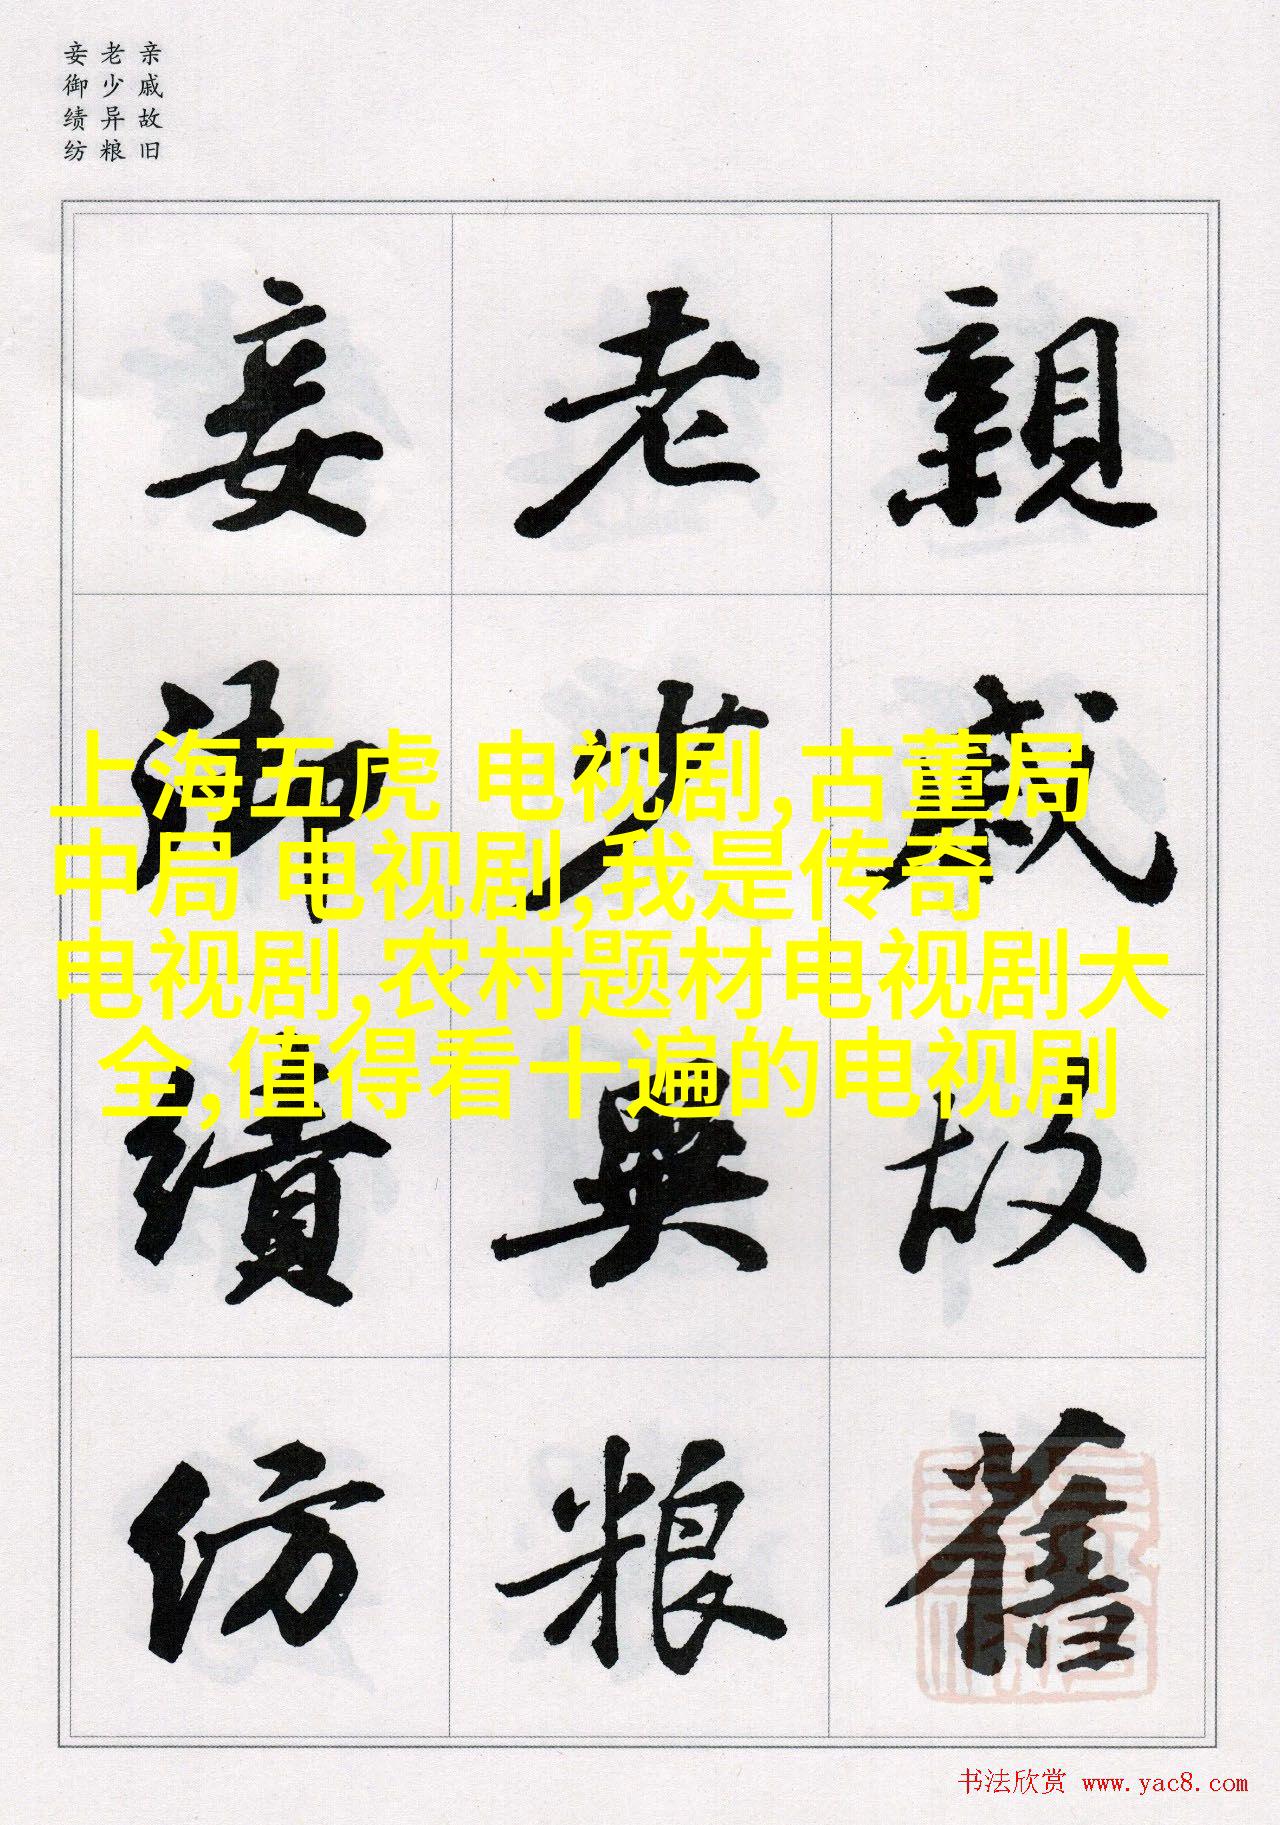 亲戚故旧
老少异粮
妾御绩纺
親戚故舊
老少異粮
妾御績紡
上海五虎 电视剧,古董局
中局 电视剧,我是传奇
电视剧,农村题材电视剧大
全,值得看十遍的电视剧
书法欣赏 www.yac8.com